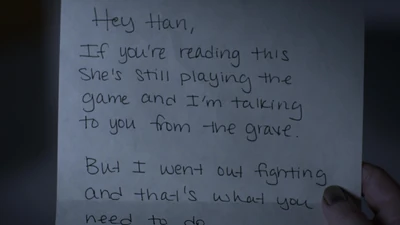 Hey Han,
If you're reading this
She's still playing the
game and I'm talking
to you from the grave.
But I went out fighting
and that's what you
need to do